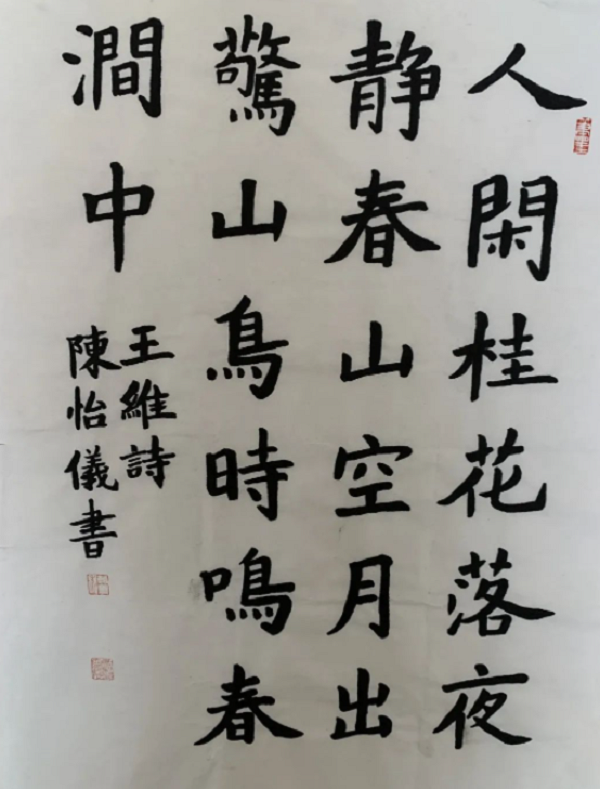 人閑桂花落夜
靜春山空月出
驚山鳥時鳴春
澗中
王維詩
陳怡儀書